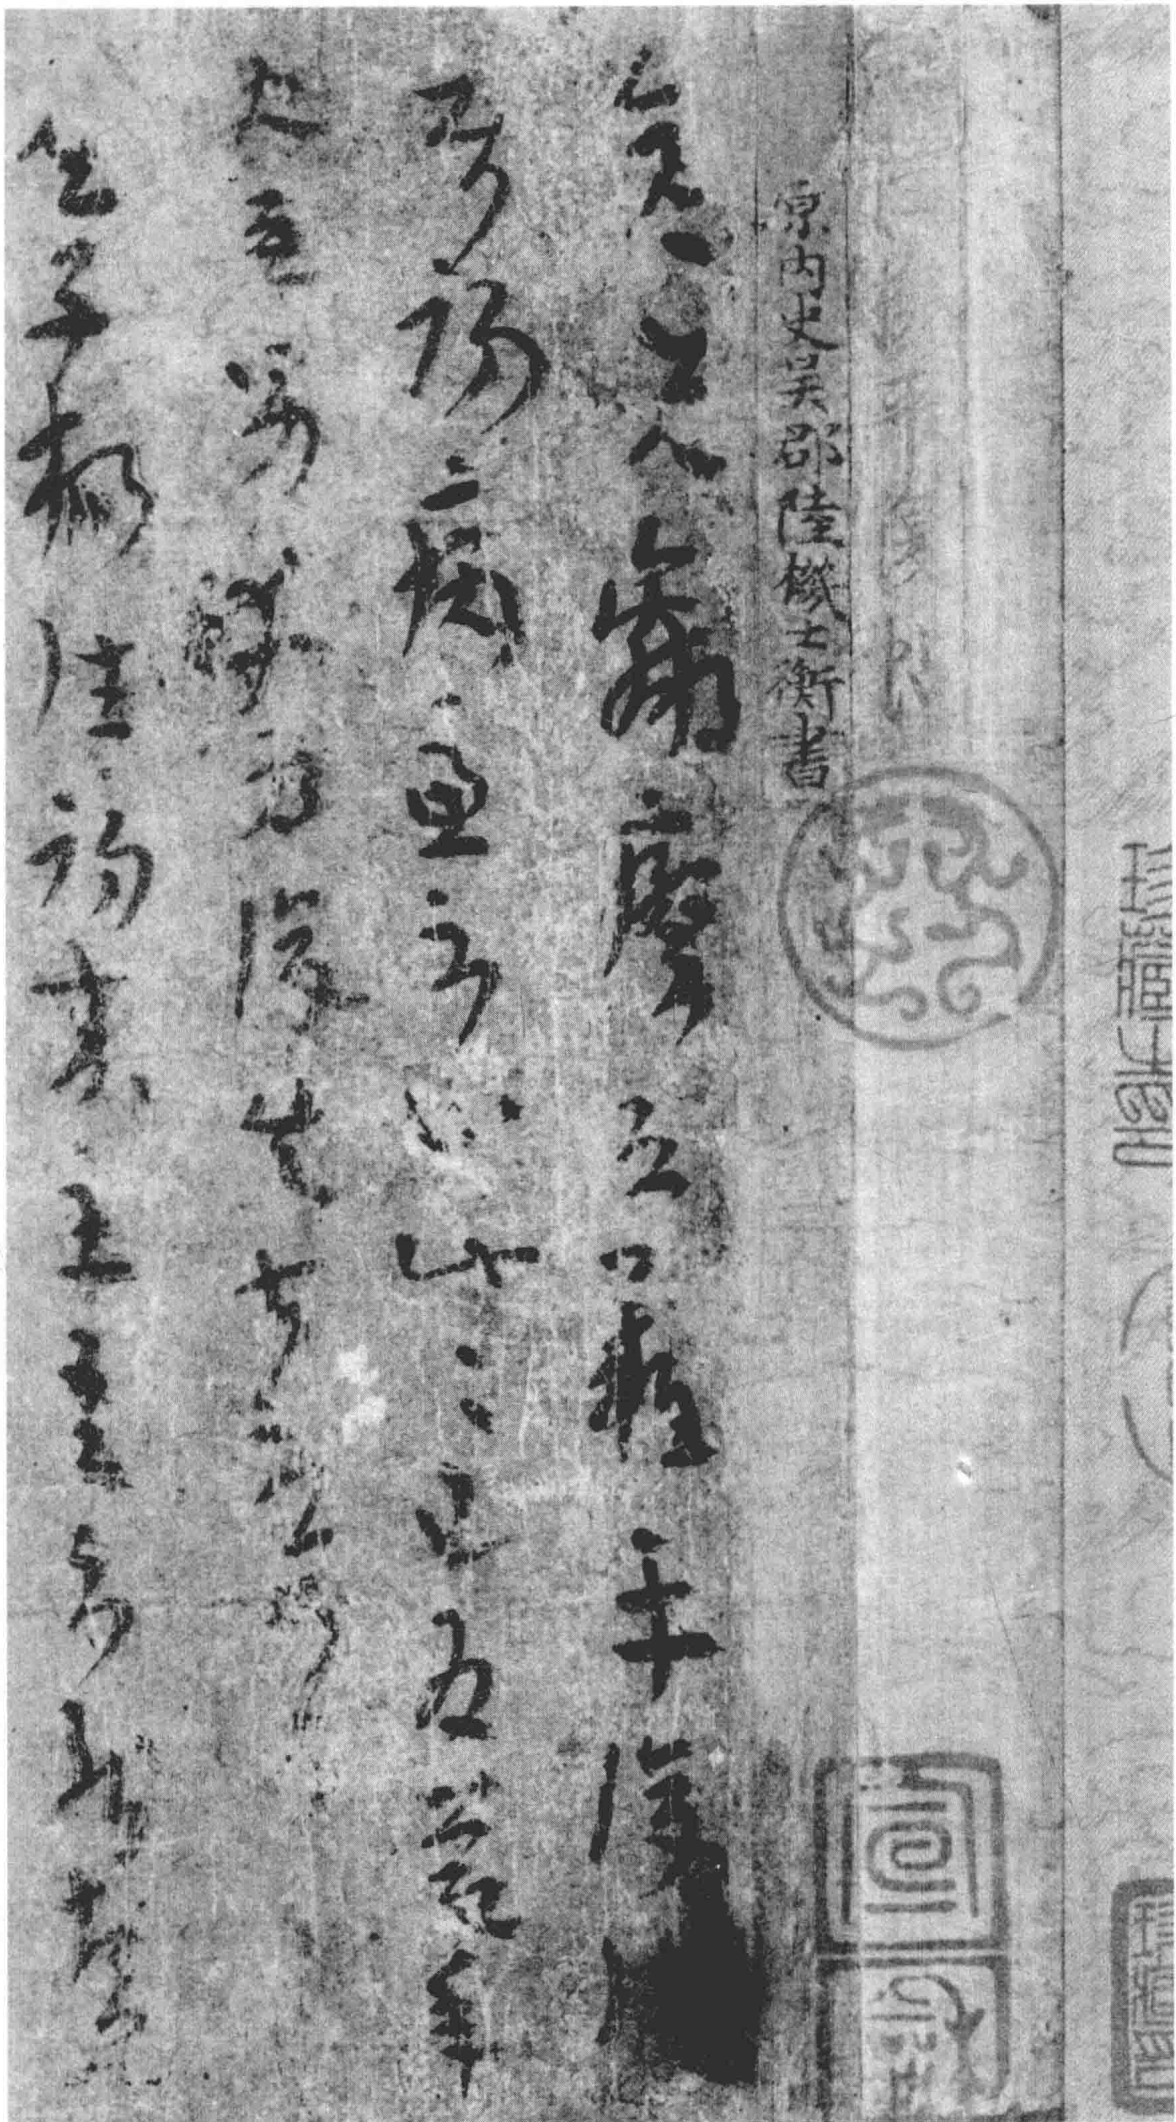 原內史吳郡陸機士衡書
彦先羸瘵恐難平復往
屬初病慮不止此此已為慶承
使唯男幸為復失前憂耳
吳子楊往初來主吾不能盡